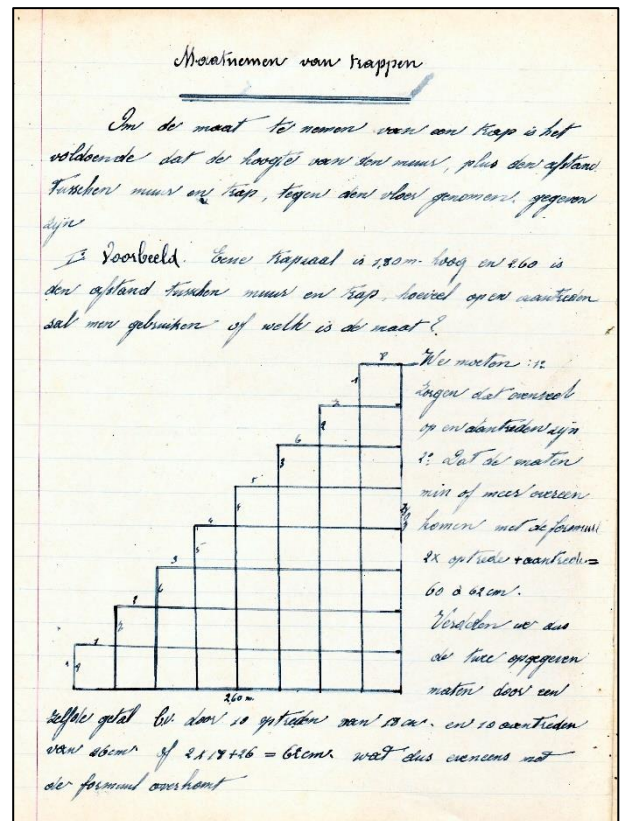 Maatnemen van trappen
Om de maat te nemen van een trap is het
voldoende dat de hoogte van den muur, plus den afstand
tusschen muur en trap, tegen den vloer genomen, gegeven
zijn
I: Voorbeeld. Eene trapzaal is 1,80 m. hoog en 2.60 is
den afstand tusschen muur en trap, hoeveel op en aantreden
zal men gebruiken of welk is de maat?
We moeten : 1:
zorgen dat evenveel
op en aantreden zijn
2: Dat de maten
min of meer overeen
komen met de formuul
2x optrede + aantrede =
60 à 62 cm.
Verdelen we dus
de twee opgegeven
maten door een
zelfde getal bv. door 10 optreden van 18 cm. en 10 aantreden
van 26 cm of 2 x 18 + 26 = 62 cm. wat dus eveneens met
de formuul overkomt
8
1
7
2
6
3
5
4
4
5
3
6
2
7
1
260 m.